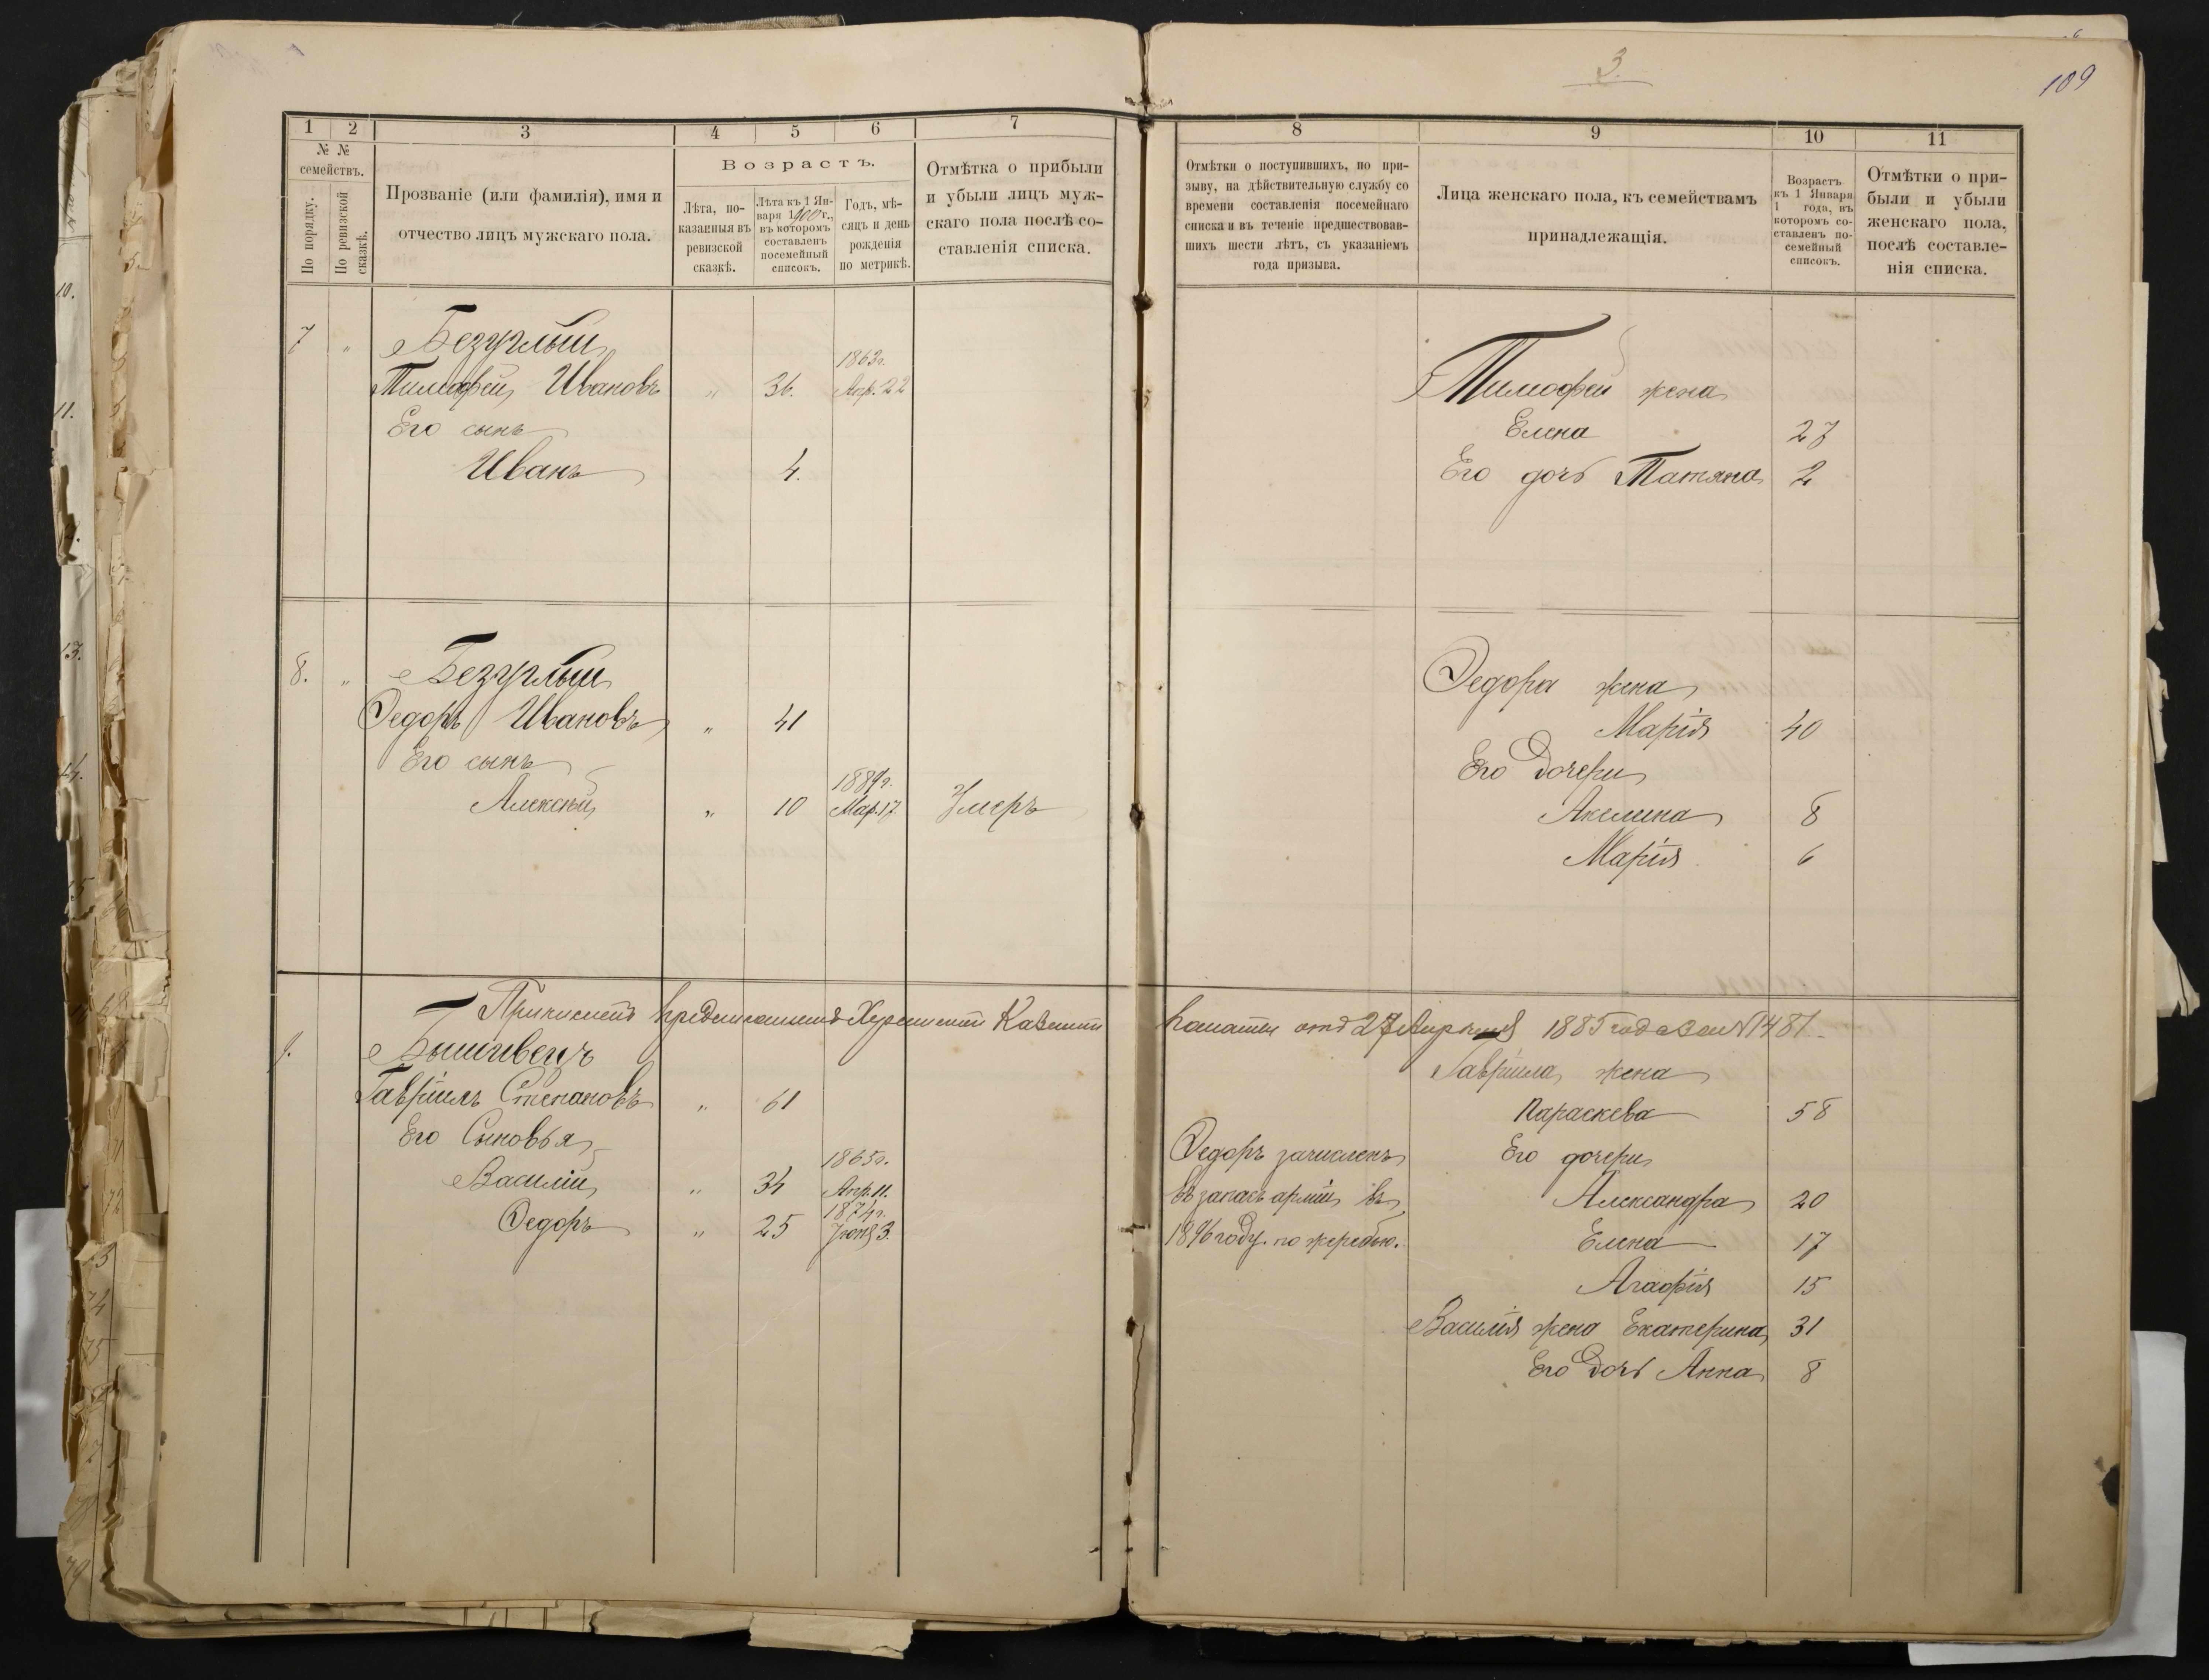 3.
109
1
2
3
4
5
6
7
№ №
семействъ.
По порядку.
По ревизской сказкѣ.
Прозваніе (или фамилія), имя и
отчество лицъ мужскаго пола.
Возрастъ.
Лѣта, по-
казанныя въ
ревизской
сказкѣ.
Лѣта къ 1 Ян-
варя 1900 г.,
въ которомъ
составленъ
посемейный
списокъ.
Годъ, мѣ-
сяцъ и день
рожденія
по метрикѣ.
Отмѣтка о прибыли
и убыли лицъ муж-
скаго пола послѣ со-
ставленія списка.
7 " Безуглый
1863г.
Тимофей Ивановъ " 36. Апр. 22
Его сынъ
Иванъ 4.
8. " Безуглый
Федоръ Ивановъ " 41
Его сынъ
1889г.
Алексѣй " 10 Мар. 17. Умеръ
Причисленъ предписаніемъ Херсонской Казенной
9. Вышивецъ
Гавріилъ Степановъ " 61
Его Сыновья
1865г.
Василій " 34 Апр. 11.
1874г.
Федоръ " 25 Іюня 3.
8
9
10
11
Отмѣтки о поступившихъ, по при-
зыву, на дѣйствительную службу со
времени составленія посемейнаго
списка и въ теченіе предшествовав-
шихъ шести лѣтъ, съ указаніемъ
года призыва.
Лица женскаго пола, къ семействамъ
принадлежащія.
Возрастъ
къ 1 Января
1 года, въ
которомъ со-
ставленъ по-
семейный
списокъ.
Отмѣтки о при-
были и убыли
женскаго пола,
послѣ составле-
нія списка.
Тимофея жена
Елена 27
Его дочь Татяна 2
Федора жена
Марія 40
Его Дочери
Акилина 8
Марія 6
палаты отъ 27 Апрѣля 1885 года за №1481.
Гавріила жена
Параскева 58
Федоръ зачисленъ Его дочери
въ запасъ арміи въ Александра 20
1896 году по жеребью. Елена 17
Агафія 15
Василія жена Екатерина 31
Его Дочь Анна 8